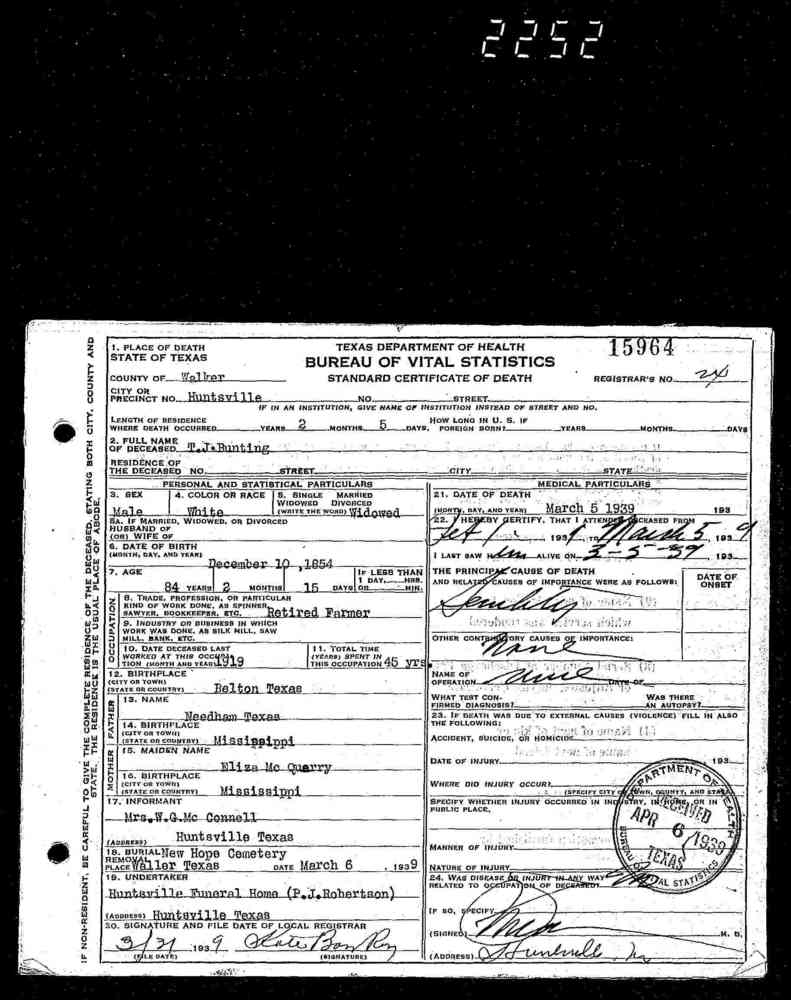 2252
IF NON-RESIDENT, BE CAREFUL TO GIVE THE COMPLETE RESIDENCE OF THE DECEASED, STATING BOTH CITY, COUNTY AND
STATE. THE RESIDENCE IS THE USUAL PLACE OF ABODE.
1. PLACE OF DEATH
STATE OF TEXAS
TEXAS DEPARTMENT OF HEALTH
BUREAU OF VITAL STATISTICS
STANDARD CERTIFICATE OF DEATH
15964
COUNTY OF Walker
REGISTRAR'S NO. 24
CITY OR
PRECINCT NO. Huntsville NO. STREET
IF IN AN INSTITUTION, GIVE NAME OF INSTITUTION INSTEAD OF STREET AND NO.
LENGTH OF RESIDENCE
WHERE DEATH OCCURRED YEARS 2 MONTHS 5 DAYS. HOW LONG IN U. S. IF
FOREIGN BORN? YEARS MONTHS DAYS
2. FULL NAME
OF DECEASED T.J.Bunting
RESIDENCE OF
THE DECEASED NO. STREET CITY STATE
PERSONAL AND STATISTICAL PARTICULARS
3. SEX
Male
4. COLOR OR RACE
White
5. SINGLE MARRIED
WIDOWED DIVORCED
(WRITE THE WORD) Widowed
5A. IF MARRIED, WIDOWED, OR DIVORCED
HUSBAND OF
(OR) WIFE OF
6. DATE OF BIRTH
(MONTH, DAY, AND YEAR)
December 10 ,1854
7. AGE
84 YEARS 2 MONTHS 15 DAYS
IF LESS THAN
1 DAY, HRS.
OR MIN.
OCCUPATION
8. TRADE, PROFESSION, OR PARTICULAR
KIND OF WORK DONE, AS SPINNER,
SAWYER, BOOKKEEPER, ETC. Retired Farmer
9. INDUSTRY OR BUSINESS IN WHICH
WORK WAS DONE, AS SILK MILL, SAW
MILL, BANK, ETC.
10. DATE DECEASED LAST
WORKED AT THIS OCCUPA-
TION (MONTH AND YEAR) 1919
11. TOTAL TIME
(YEARS) SPENT IN
THIS OCCUPATION 45 yrs
12. BIRTHPLACE
(CITY OR TOWN)
(STATE OR COUNTRY) Belton Texas
FATHER
13. NAME
Needham Texas
14. BIRTHPLACE
(CITY OR TOWN)
(STATE OR COUNTRY) Mississippi
MOTHER
15. MAIDEN NAME
Eliza Mc Querry
16. BIRTHPLACE
(CITY OR TOWN)
(STATE OR COUNTRY) Mississippi
17. INFORMANT
Mrs.W.G.Mc Connell
(ADDRESS) Huntsville Texas
18. BURIAL New Hope Cemetery
REMOVAL
PLACE Waller Texas DATE March 6 , 1939
19. UNDERTAKER
Huntsville Funeral Home (P.J.Robertson)
(ADDRESS) Huntsville Texas
20. SIGNATURE AND FILE DATE OF LOCAL REGISTRAR
3/31 , 1939
(FILE DATE) (SIGNATURE)
MEDICAL PARTICULARS
21. DATE OF DEATH
(MONTH, DAY, AND YEAR) March 5 1939 193
22. I HEREBY CERTIFY, THAT I ATTENDED DECEASED FROM
193 , TO March 5, 1939
I LAST SAW him ALIVE ON 3-5-39 193
THE PRINCIPAL CAUSE OF DEATH
AND RELATED CAUSES OF IMPORTANCE WERE AS FOLLOWS:
DATE OF
ONSET
Senility
OTHER CONTRIBUTORY CAUSES OF IMPORTANCE:
None
NAME OF
OPERATION None DATE OF
WHAT TEST CON-
FIRMED DIAGNOSIS? WAS THERE
AN AUTOPSY?
23. IF DEATH WAS DUE TO EXTERNAL CAUSES (VIOLENCE) FILL IN ALSO
THE FOLLOWING:
ACCIDENT, SUICIDE, OR HOMICIDE
DATE OF INJURY 193
WHERE DID INJURY OCCUR?
(SPECIFY CITY OR TOWN, COUNTY, AND STATE)
SPECIFY WHETHER INJURY OCCURRED IN INDUSTRY, IN HOME, OR IN
PUBLIC PLACE.
MANNER OF INJURY
NATURE OF INJURY
24. WAS DISEASE OR INJURY IN ANY WAY
RELATED TO OCCUPATION OF DECEASED?
IF SO, SPECIFY
(SIGNED) M. D.
(ADDRESS) Huntsville
DEPARTMENT OF HEALTH
RECEIVED
APR 6 1939
TEXAS
BUREAU OF VITAL STATISTICS